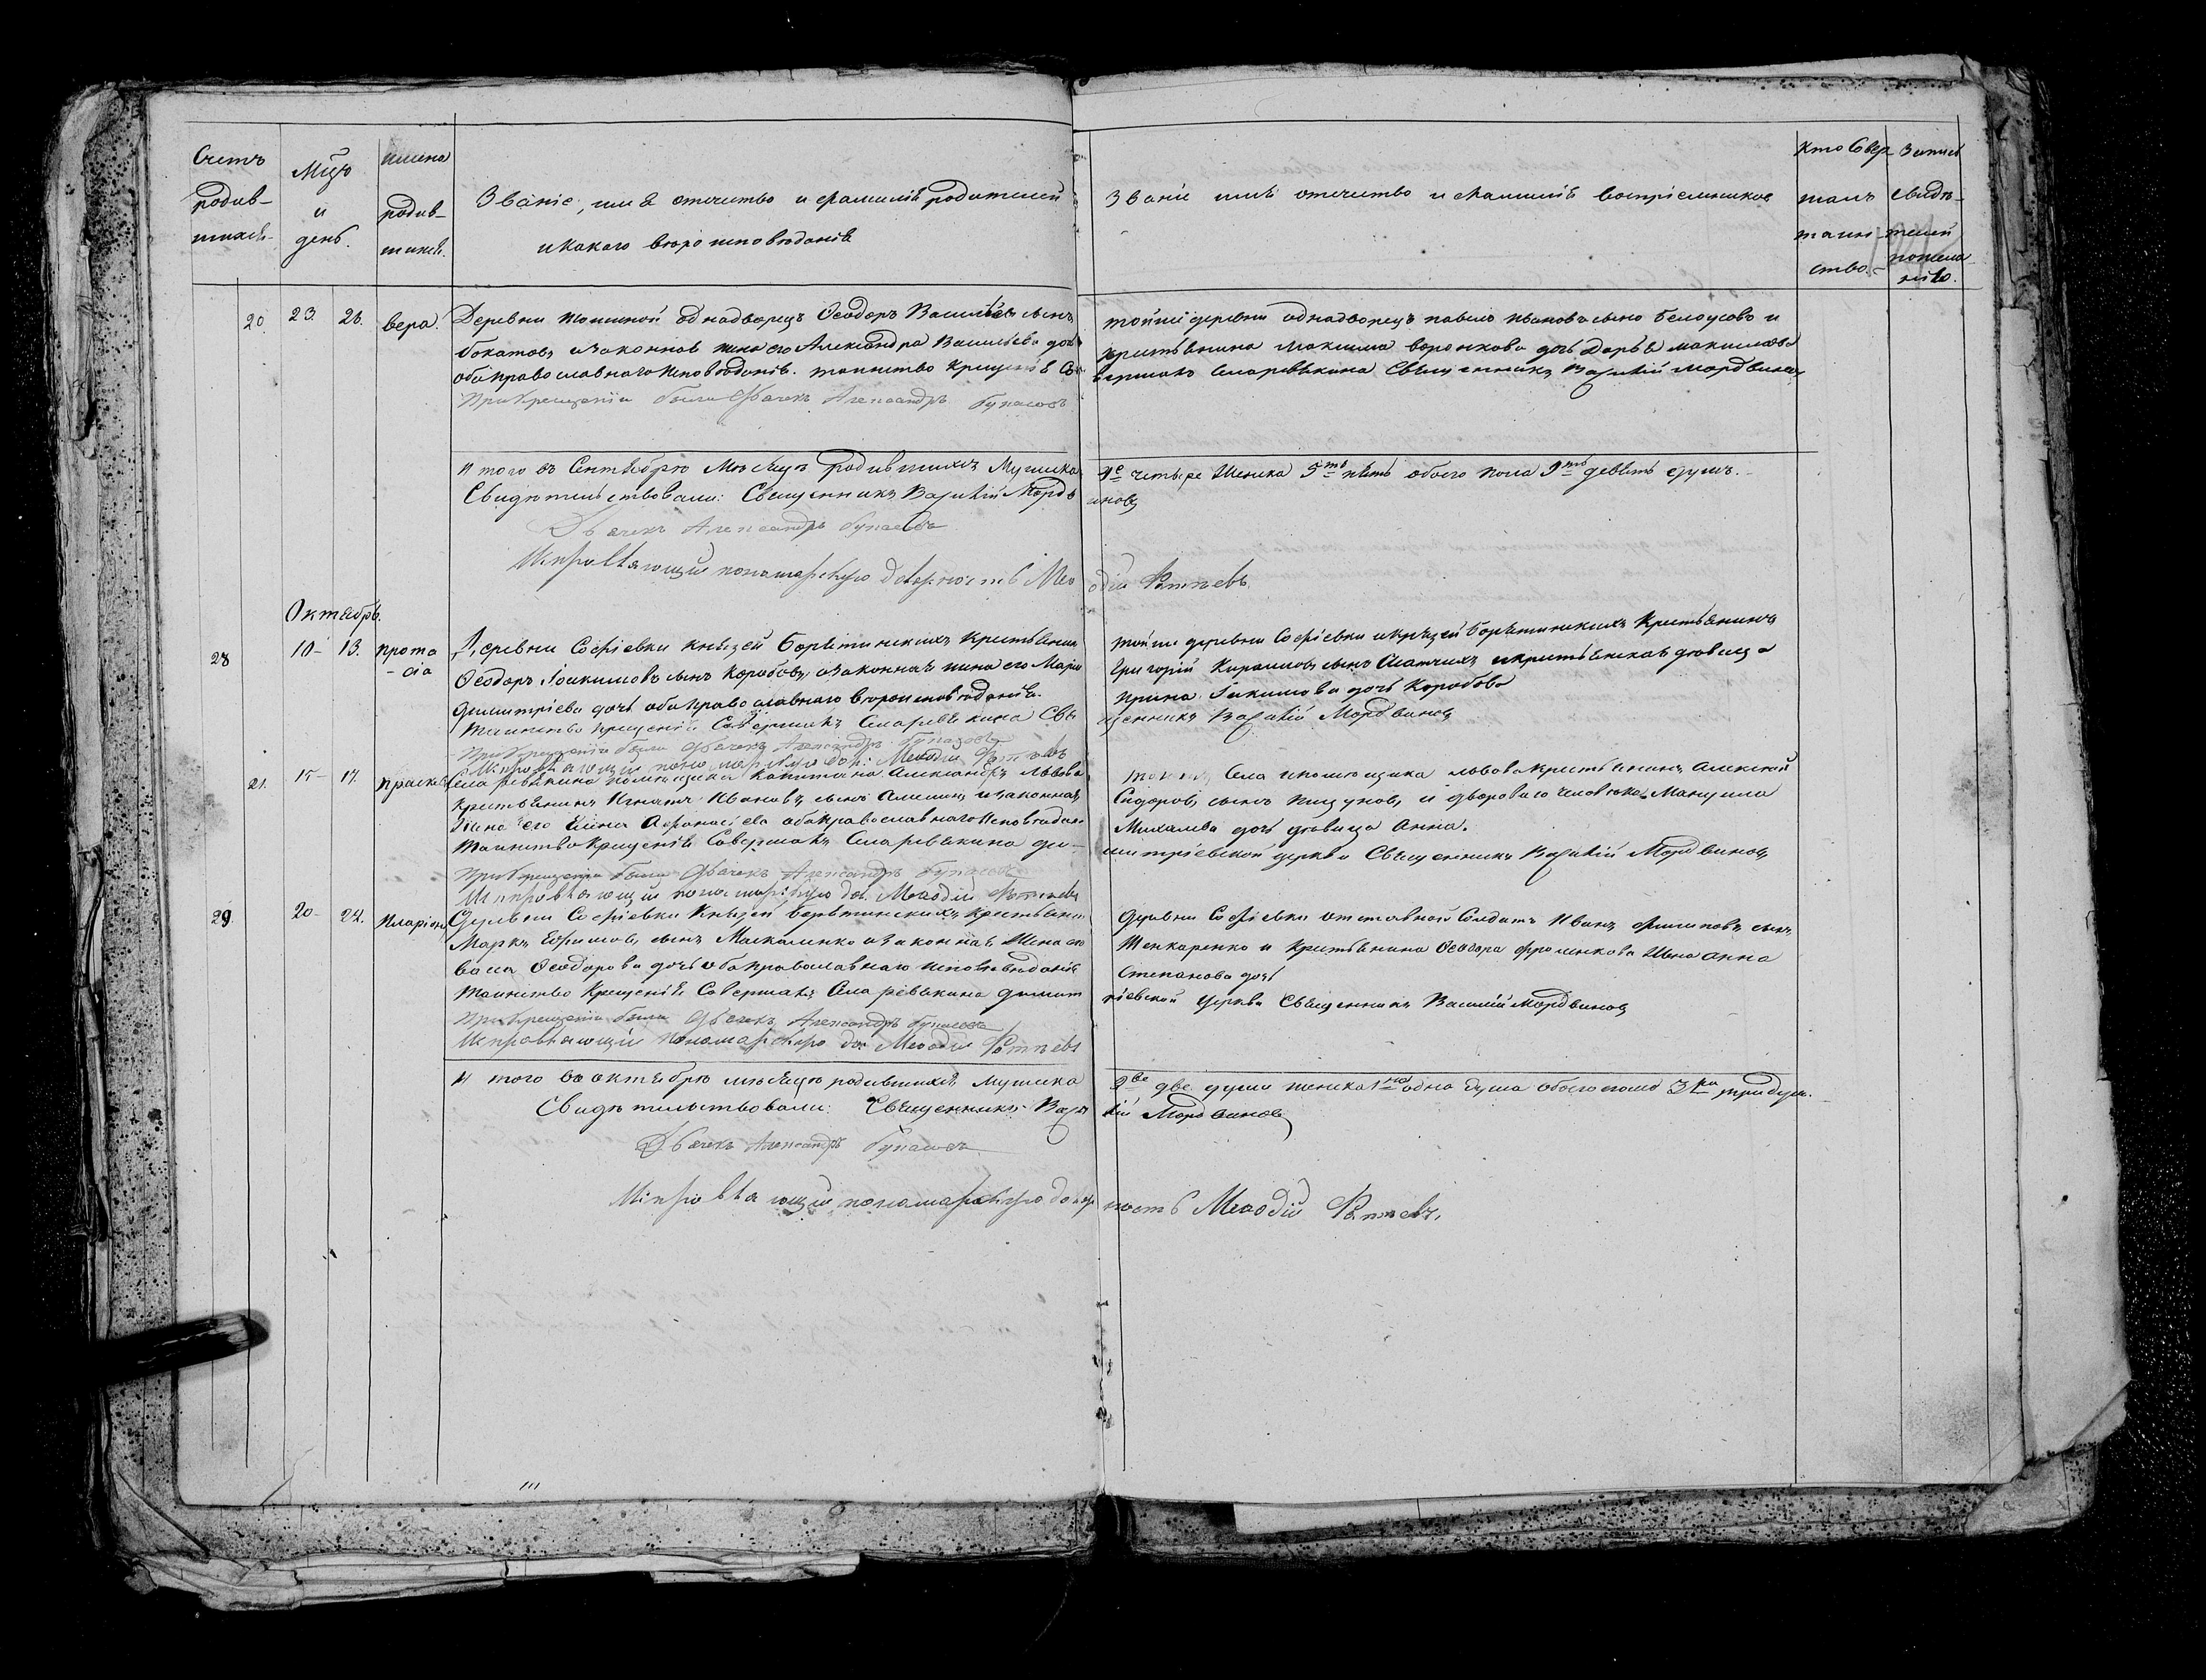 Счетъ родив-шихся.
Мцъ и день.
имена родив-шихся.
Званіе, имя отечество и фамилія родителей
и какого вероисповеданія
Званіе имя отечество и фамилія воспріемниковъ
Кто совер шалъ таин-ство.
Запись свиде-телей
20. 23. 26. вера.
Деревни однадворецъ Ѳеодоръ Васильевъ сынъ
законная жена его Александра Васильева дочь
оба православнаго исповеданія. таинство крещенія Со
При крещеніи были Дьячекъ Александръ
тойже деревни однадворецъ павелъ ивановъ сынъ белоусовъ и
крестьянина максима воронкова дочь Дарья максимова
вершалъ села ревякина Священникъ Василій Мордвиновъ
итого въ Сентябре Месяце родившихся Мужска
4е четыре Женска 5ть пять обоего пола 9ть девять душъ.
Свидетельствовали: Священникъ Василій Мордв
иновъ
Дьячекъ Александръ
Исправляющій пономарскую должность Меѳ
одій
Октябрь.
28 10- 13. прота-сія
Деревни Софіевки князей Борятинскихъ Крестьянин
Ѳеодоръ Іоакимовъ сынъ Коробовъ, и законная жена его Марія
Димитріева дочь оба православнаго вероисповеданія.
Таинство крещенія Совершалъ Села ревякина Свя
При крещеніи были Дьячекъ Александръ
Исправляющій пономарскую дол: Меѳодій
тойже деревни Софіевки и князей Борятинскихъ Крестьянинъ
Григорій сынъ и крестьянская девица
Ирина Іакимова дочь Коробова
щенникъ Василій Мордвиновъ
21. 15- 17. праскев
Села ревякина помещика Капитана Александра Львова
крестьянинъ Игнатъ Ивановъ сынъ и законная
Жена его Елена Афанасіева оба православнаго исповедан
Таинство крещенія Совершалъ Села ревякина ди-
При крещеніи были Дьячекъ Александръ
Исправляющій пономарскую дол. Меѳодій
Села и помещика львова крестьянинъ Алексей
Сидоровъ сынъ и двороваго человека Мануила
Михаилова дочь девица Анна.
митріевской церкви Священникъ Василій Мордвиновъ
29. 20- 24. Иларіонъ
Деревни Софіевки Князей борятинскихъ крестьянин
Маркъ Ефимовъ сынъ Москаленко и законная Жена его
Ѳеодорова дочь оба православнаго исповеданія
Таинство Крещенія Совершалъ Села ревякина димит
При крещеніи были Дьячекъ Александръ
Исправляющій пономарскую дол: Меѳодій
Деревни Софіевки отставной Солдатъ Иванъ Филиповъ сынъ
и Крестьянина Ѳеодора фроленкова Жена анна
Степанова дочь
ріевской Церкви Священникъ Василій Мордвиновъ
итого въ октябре месяце родившихся Мужска
2ве две души женска 1на одна душа обоего пола 3ри три души.
Свидетельствовали: Священникъ Васи
лій Мордвиновъ
Дьячекъ Александръ
Исправляющій пономарскую долж
ность Меѳодій